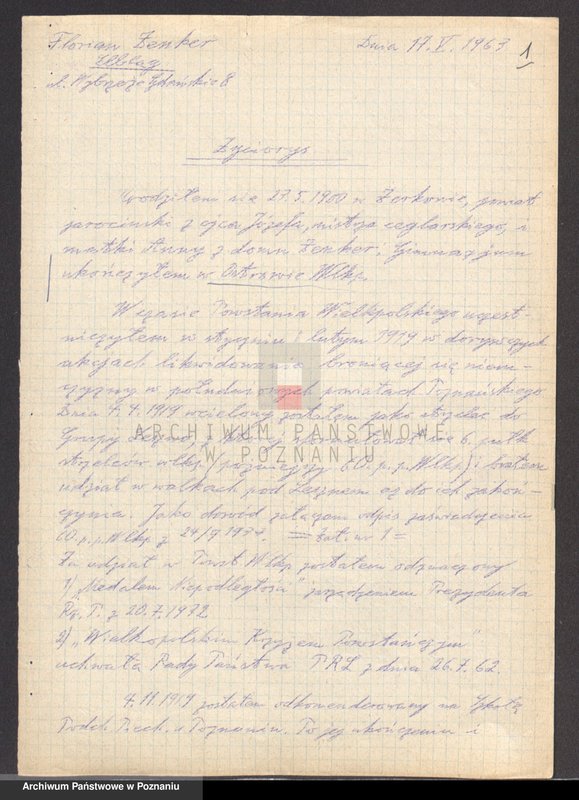 Florian Zenker
Dnia 17. V. 1963
1
Elbląg
ul. Wybrzeże Gdańskie 8
Życiorys
Urodziłem się 27.5.1900 w Żerkowie, powiat
jarociński z ojca Józefa, mistrza ceglarskiego, i
matki Anny z domu Zenker. Gimnazjum
ukończyłem w Ostrowie Wlkp.
W czasie Powstania Wielkopolskiego uczest-
niczyłem w styczniu i lutym 1919 w dorywczych
akcjach likwidowania broniącej się niem-
czyzny w południowych powiatach Poznańskiego
Dnia 4.4.1919 wcielony zostałem jako strzelec do
Grupy Leszno, z której sformował się 6. pułk
strzelców wlkp. (późniejszy 60 p.p. Wlkp.) i brałem
udział w walkach pod Lesznem aż do ich zakoń-
czenia. Jako dowód załączam odpis zaświadczenia
60 p.p. Wlkp. z = zał. nr 1 =
Za udział w Powst. Wlkp. zostałem odznaczony
1) „Medalem Niepodległości" zarządzeniem Prezydenta
Rz. P. z 20.7.1932
2) „Wielkopolskim Krzyżem Powstańczym"
uchwała Rady Państwa PRL z dnia 26.7.62.
4.11.1919 zostałem odkomenderowany na Szkołę
Podch. Piech. w Poznaniu. Po jej ukończeniu i
ARCHIWUM PAŃSTWOWE
W POZNANIU
Archiwum Państwowe w Poznaniu